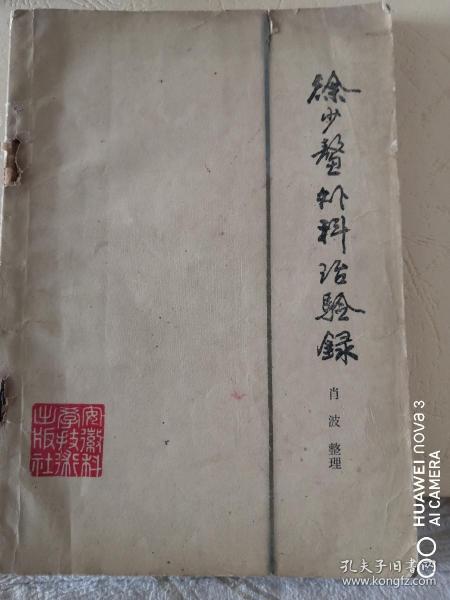 徐少鳌外科治验录
肖波 整理
安徽科
学技术
出版社
HUAWEI nova 3
AI CAMERA
孔夫子旧书网
www.kongfz.com